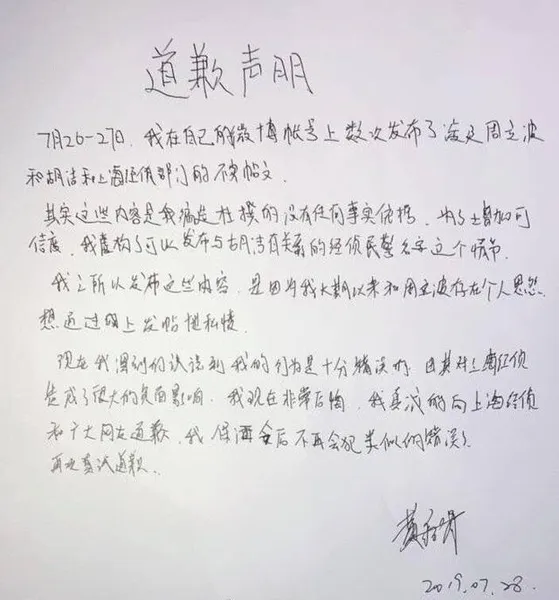 道歉声明
7月26-27日，我在自己的微博帐号上数次发布了涉及周立波
和胡洁和上海经侦部门的不实帖文．
其实这些内容是我编造杜撰的没有任何事实依据，为了增加可
信度，我虚构了可以发布与胡洁有关系的经侦民警名字这个情节．
我之所以发布这些内容，是因为我长期以来和周立波存在个人恩怨
想通过网上发帖泄私愤．
现在我深刻的认识到我的行为是十分错误的，因其对上海经侦
造成了很大的负面影响，我现在非常后悔，我真诚的向上海经侦
和广大网友道歉，我保证今后不再会犯类似的错误．
再次真诚道歉．
2019.07.28